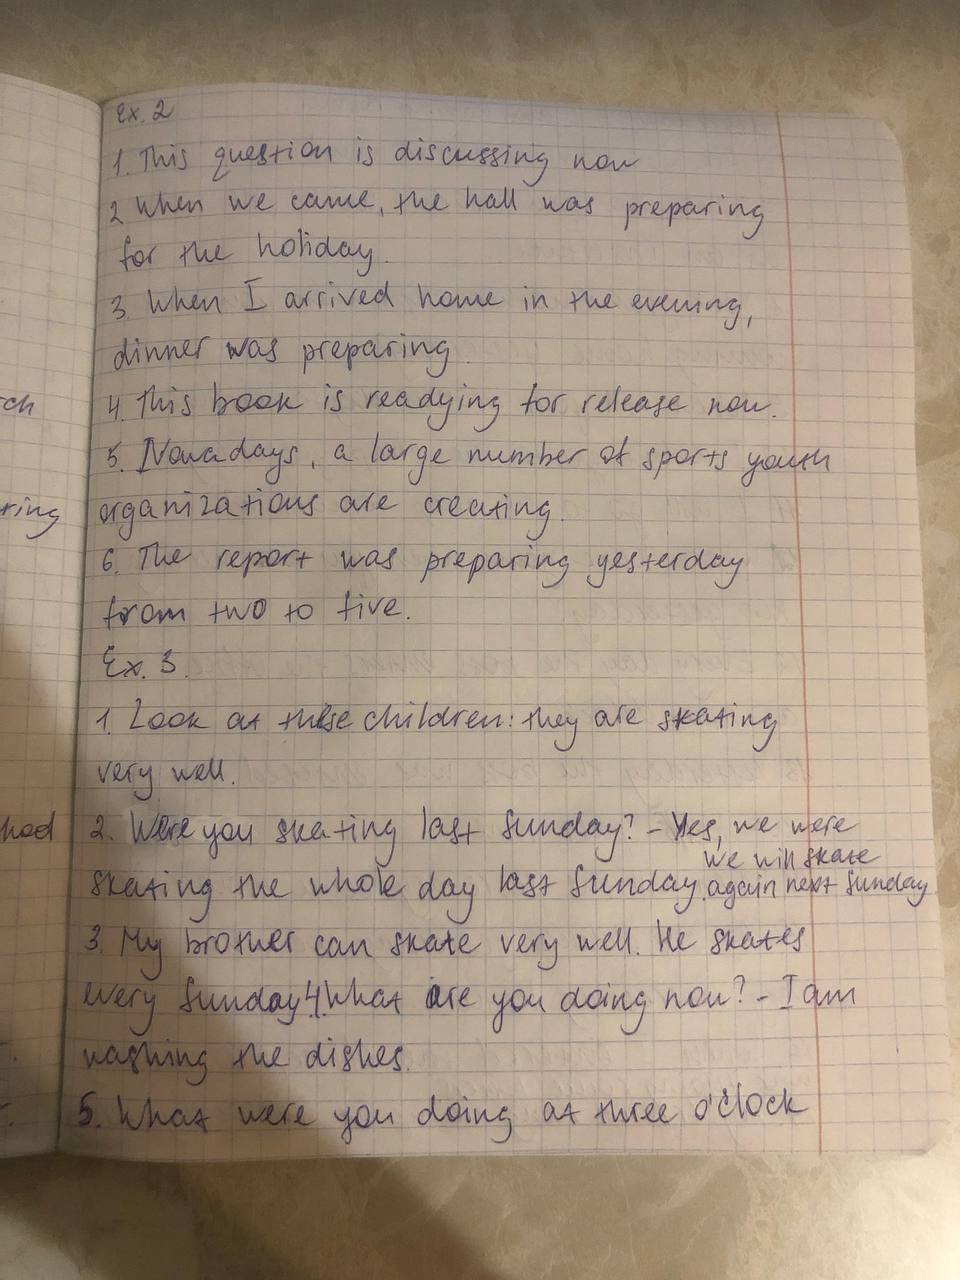 Ex. 2
1. This question is discussing now
2 When we came, the hall was preparing
for the holiday.
3. When I arrived home in the evening,
dinner was preparing.
rch
4. This book is readying for release now.
5. Nowadays, a large number of sports youth
ring
organizations are creating.
6. The report was preparing yesterday
from two to five.
Ex. 3.
1. Look at these children: they are skating
very well.
had
2. Were you skating last Sunday? - Yes, we were
we will skate
skating the whole day last Sunday. again next Sunday
3. My brother can skate very well. He skates
every Sunday. 4. What are you doing now? - I am
washing the dishes.
5. What were you doing at three o'clock